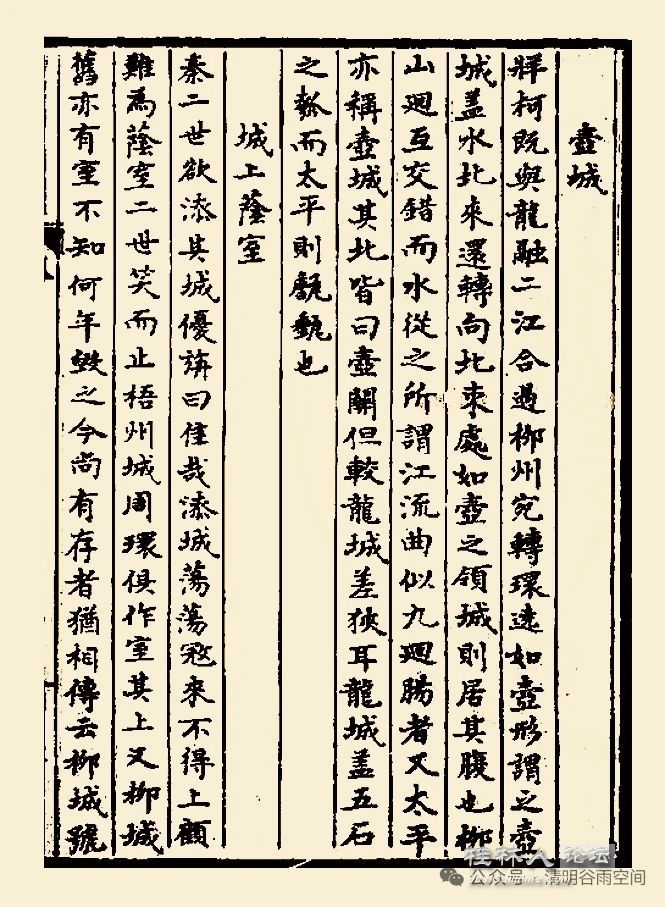 壺城
牂柯既與龍融二江合過柳州宛轉環遶如壺形謂之壺
城盖水北來還轉向北來處如壺之領城則居其腹也柳
山廻互交錯而水從之所謂江流曲似九廻腸者又太平
亦稱壺城其北皆曰壺關但較龍城差狹耳龍城盖五石
之瓠而太平則甒甀也
城上蔭室
秦二世欲漆其城優旃曰佳哉漆城蕩蕩寇來不得上顧
難為蔭室二世笑而止梧州城周環俱作室其上又柳城
舊亦有室不知何年毀之今尚有存者猶相傳云柳城號
桂林人论坛
公众号·清明谷雨空间